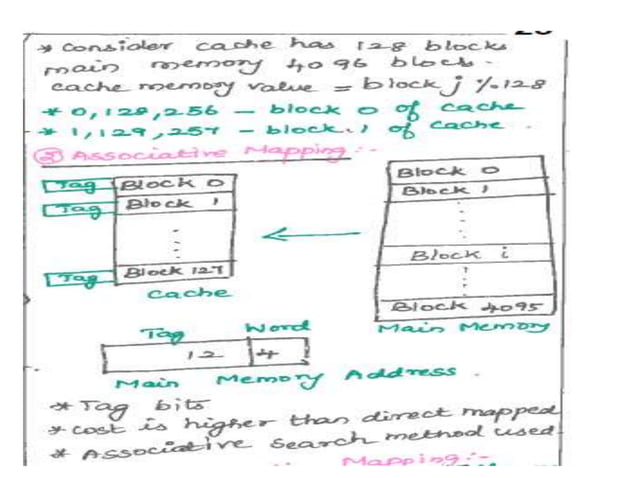 * consider cache has 128 blocks
main memory 4096 block.
cache memory value = block j % 128
* 0,128,256 - block 0 of cache
* 1,129,257 - block 1 of cache.
② Associative Mapping :-
Tag Block 0
Tag Block 1
Tag Block 127
Cache
Block 0
Block 1
Block i
Block 4095
Main Memory
Tag Word
12 4
Main Memory Address.
* Tag bits
* cost is higher than direct mapped
* Associative search method used
Mapping :-